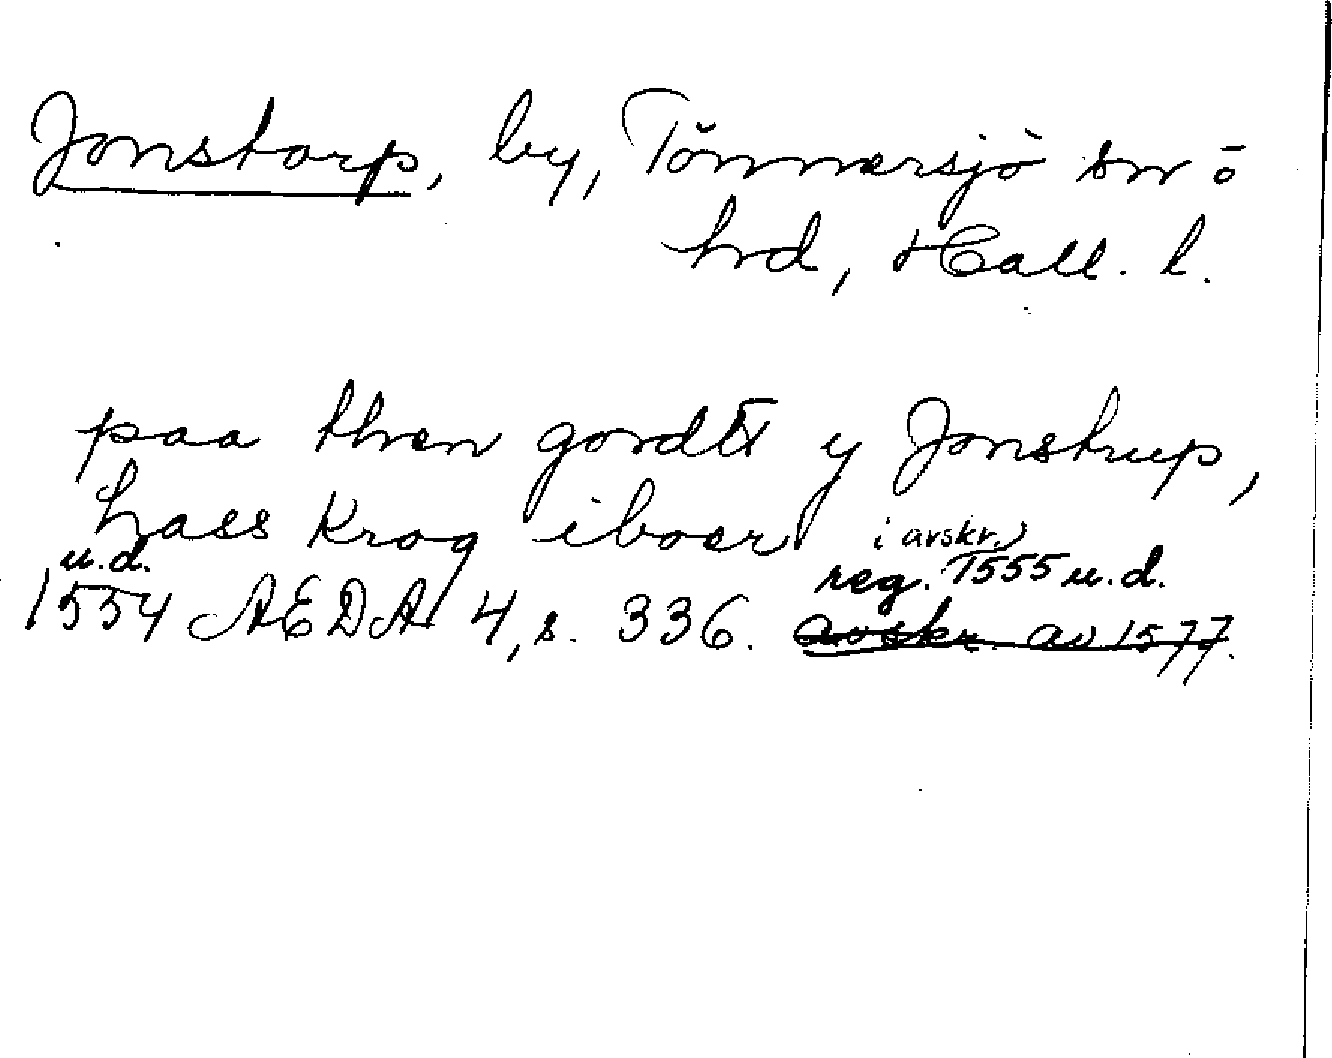 Jonstorp, by, Tönnersjö sn o
hrd, Hall. l.
paa then gordtt y Jonstrup,
Lass Krog iboer
u.d. i avskr.)
1554 AEDA 4, s. 336. reg. 1555 u.d.
avskr. av 1577.